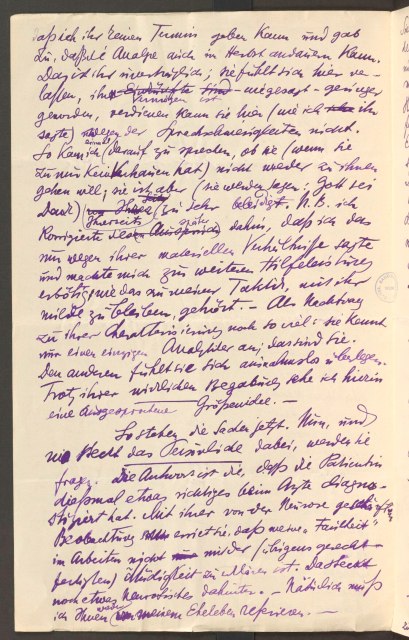 daß ich ihr keinen Termin geben kann und gab
zu, daß die Analyse auch im Herbst andauern kann.
Das ist ihr unerträglich; sie fühlt sich hier ver-
lassen, ihr Vermögen ist insgesamt geringer
geworden, verdienen kann sie hier (wie ich ihr
sagte) wegen der Sprachschwierigkeiten nicht.
So kam ich einmal darauf zu sprechen, ob sie (wenn sie
zu mir kein Vertrauen hat) nicht wieder zu Ihnen
gehen will; sie ist aber (sie werden sagen: Gott sei
Dank) Ihrerseits zu sehr beleidigt. N.B. ich
korrigierte diesen Ausspruch später dahin, daß ich das
nur wegen ihrer materiellen Verhältnisse sagte
und machte mich zur weiteren Hilfeleistung
erbötig, wie das zu meiner Taktik, mit ihr
milde zu bleiben, gehört. – Als Nachtrag
zu ihrer Charakterisierung noch so viel: sie kennt
nur einen einzigen Analytiker an; das sind Sie.
Den anderen fühlt sie sich ausnahmslos überlegen.
Trotz ihrer wirklichen Begabung sehe ich hierin
eine ausgesprochene Größenidee. –
So stehen die Sachen jetzt. Nun, und
wo steckt das Persönliche dabei, werden Sie
fragen. Die Antwort ist die, daß die Patientin
diesmal etwas richtiges beim Arzte diagno-
stiziert hat. Mit ihrer von der Neurose geschärften
Beobachtung erriet sie, daß meine „Faulheit“
im Arbeiten nicht mit der (übrigens gerecht-
fertigten) Müdigkeit zu erklären ist. Da steckt
noch etwas Neurotisches dahinter. – Natürlich muß
ich Ihnen wieder von meinem Eheleben referieren. –